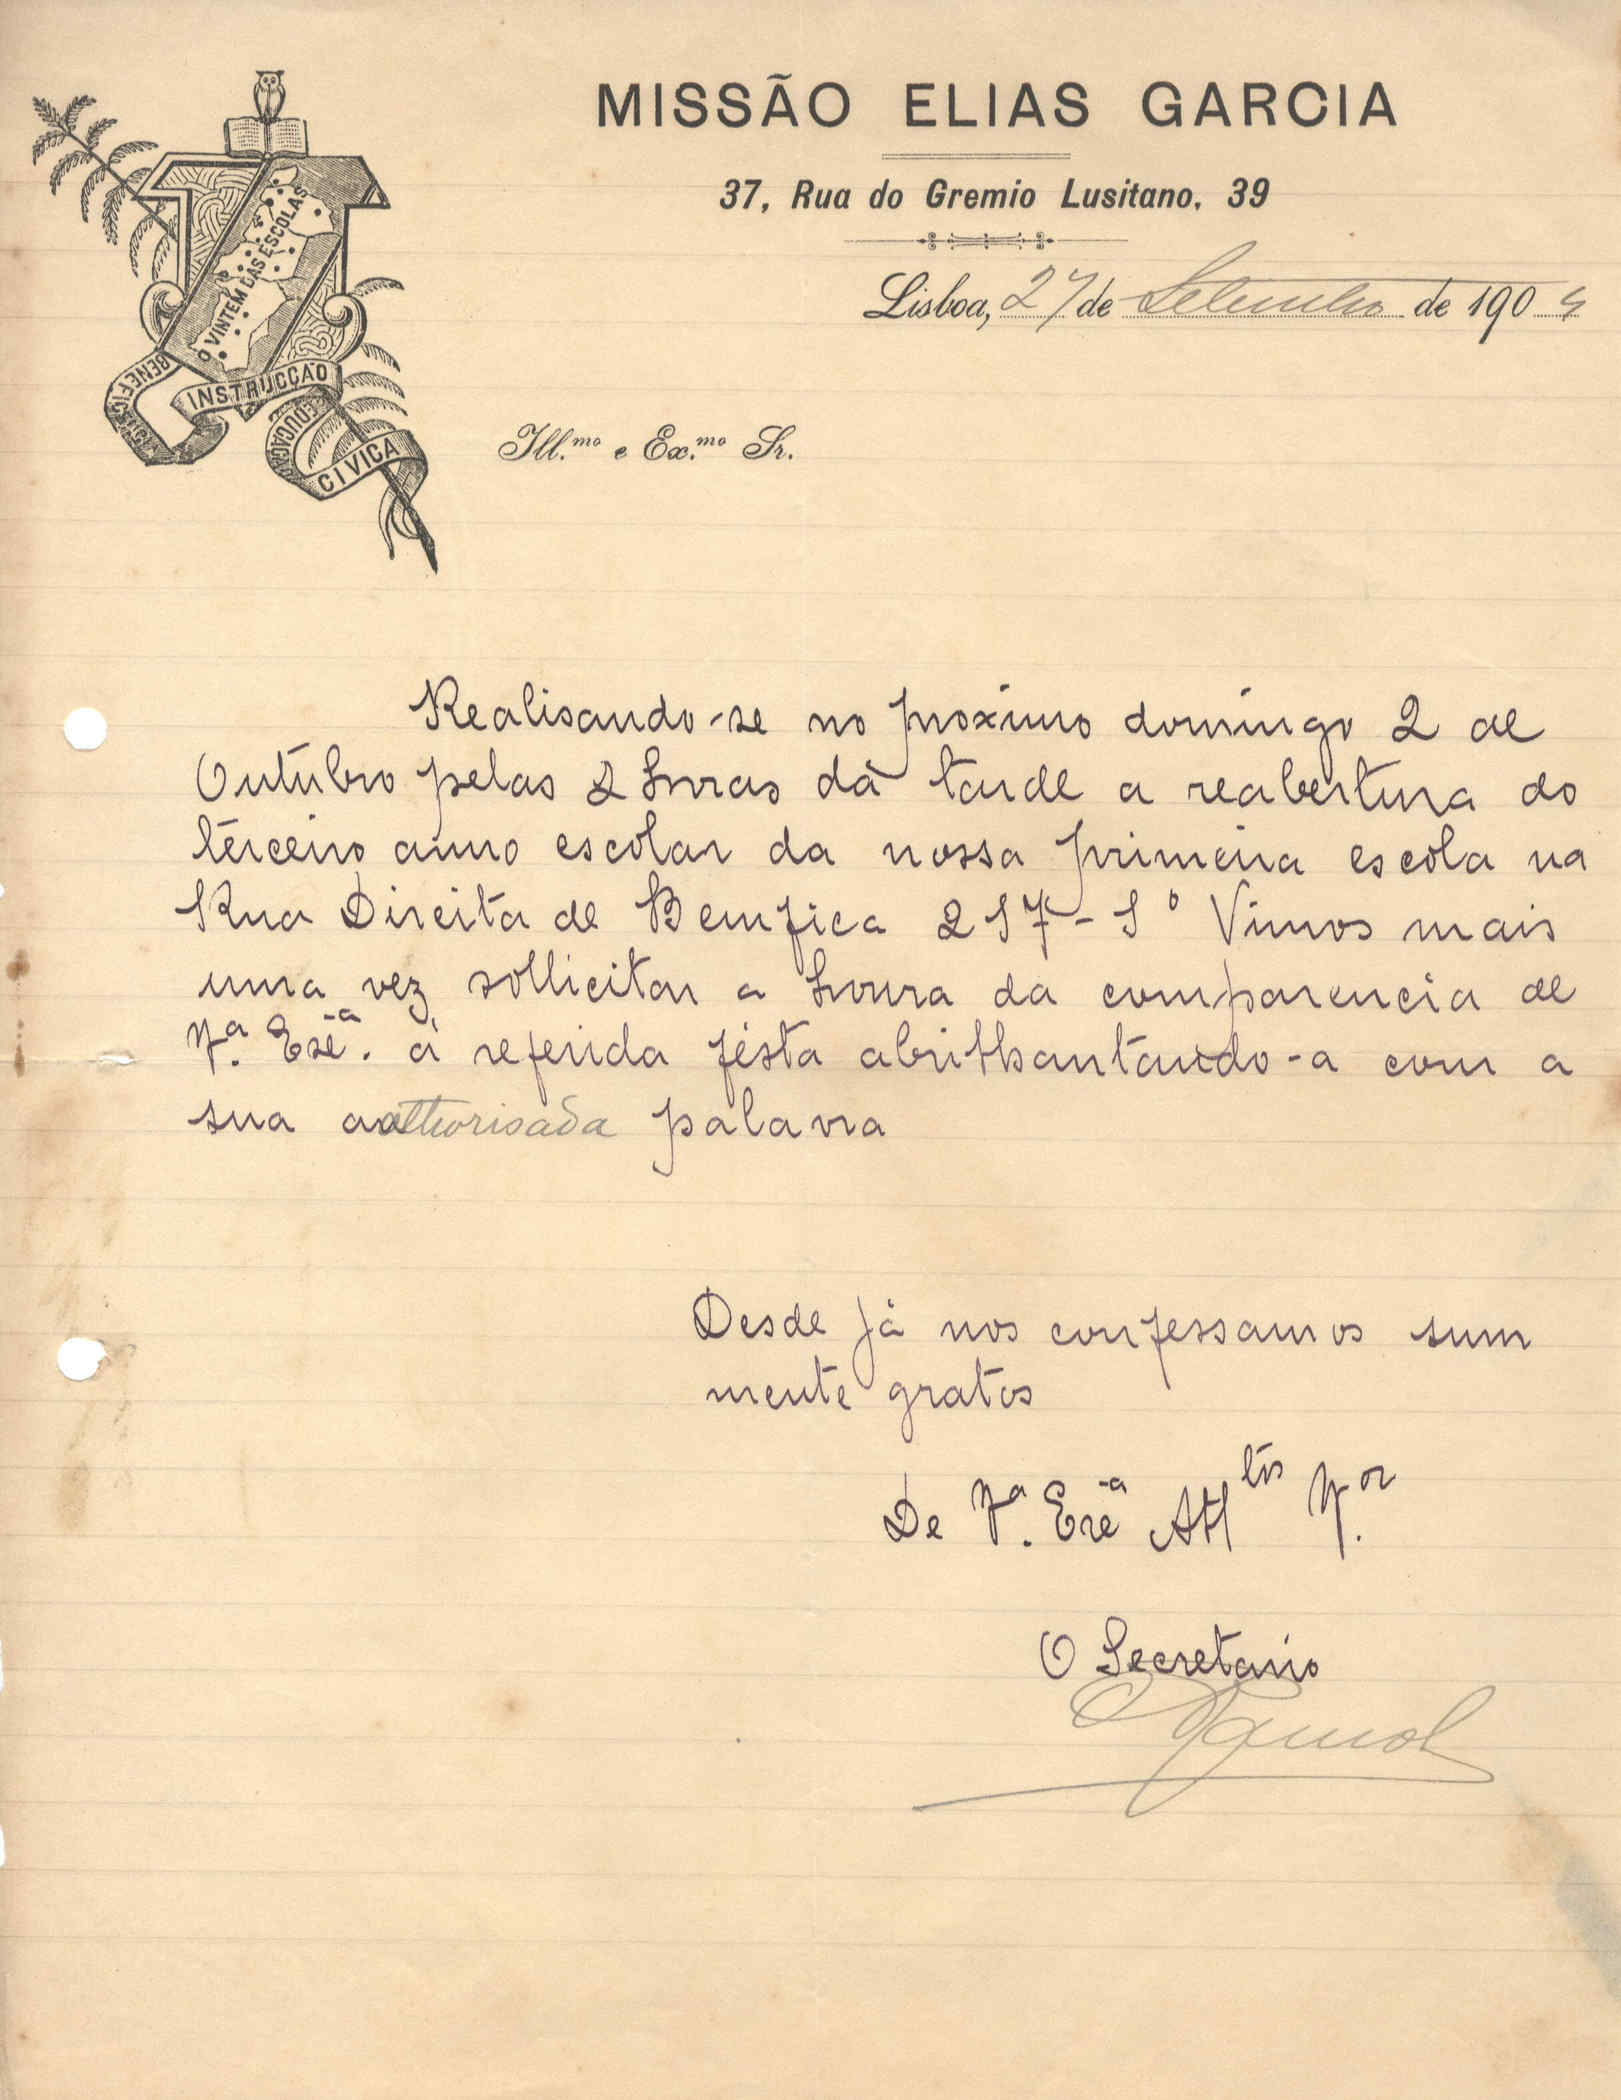 MISSÃO ELIAS GARCIA
37, Rua do Gremio Lusitano, 39
Lisboa, 27 de Setembro de 1904
O VINTEM DAS ESCOLAS
BENEFICENCIA
INSTRUCÇÃO
EDUCAÇÃO
CIVICA
Ill.mo e Ex.mo Sr.
Realisando-se no proximo domingo 2 de
Outubro pelas 2 horas da tarde a reabertura do
terceiro anno escolar da nossa primeira escola na
Rua Direita de Bemfica 217-1º Vimos mais
uma vez sollicitar a honra da comparencia de
V.ª Exª. á referida festa abrilhantando-a com a
sua authorisada palavra
Desde já nos confessamos sum
mente gratos
De V.ª Exª Att.tos V.or
O Secretario